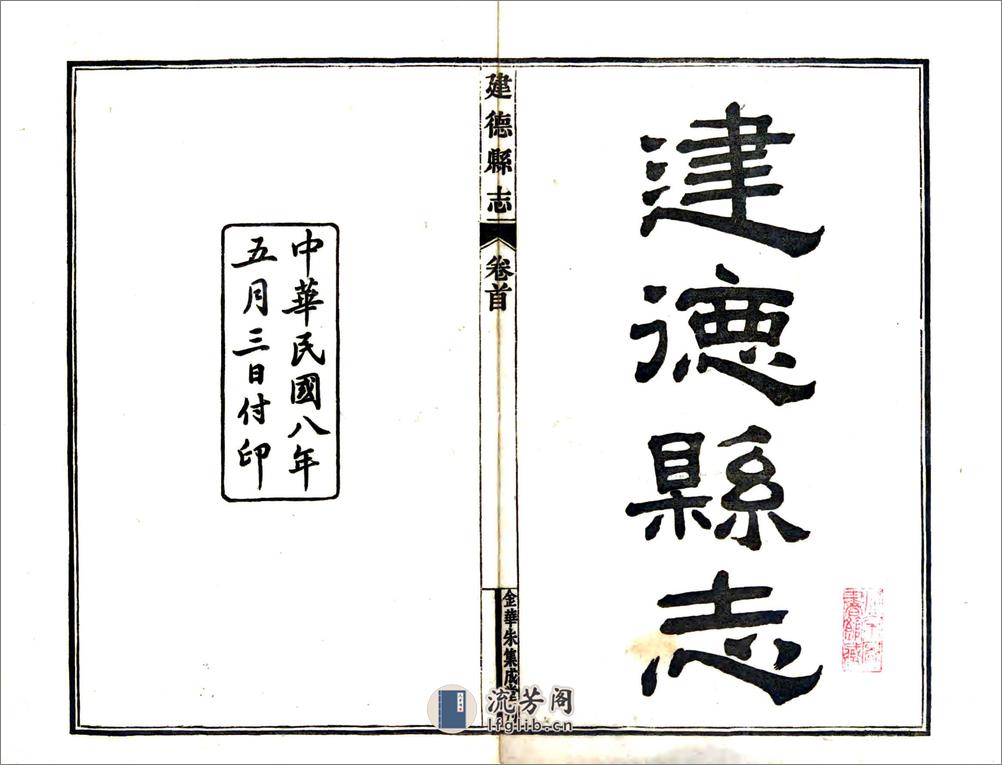 建德縣志
建德縣志
卷首
金華朱集成堂
中華民國八年
五月三日付印
流芳阁
lfglib.cn